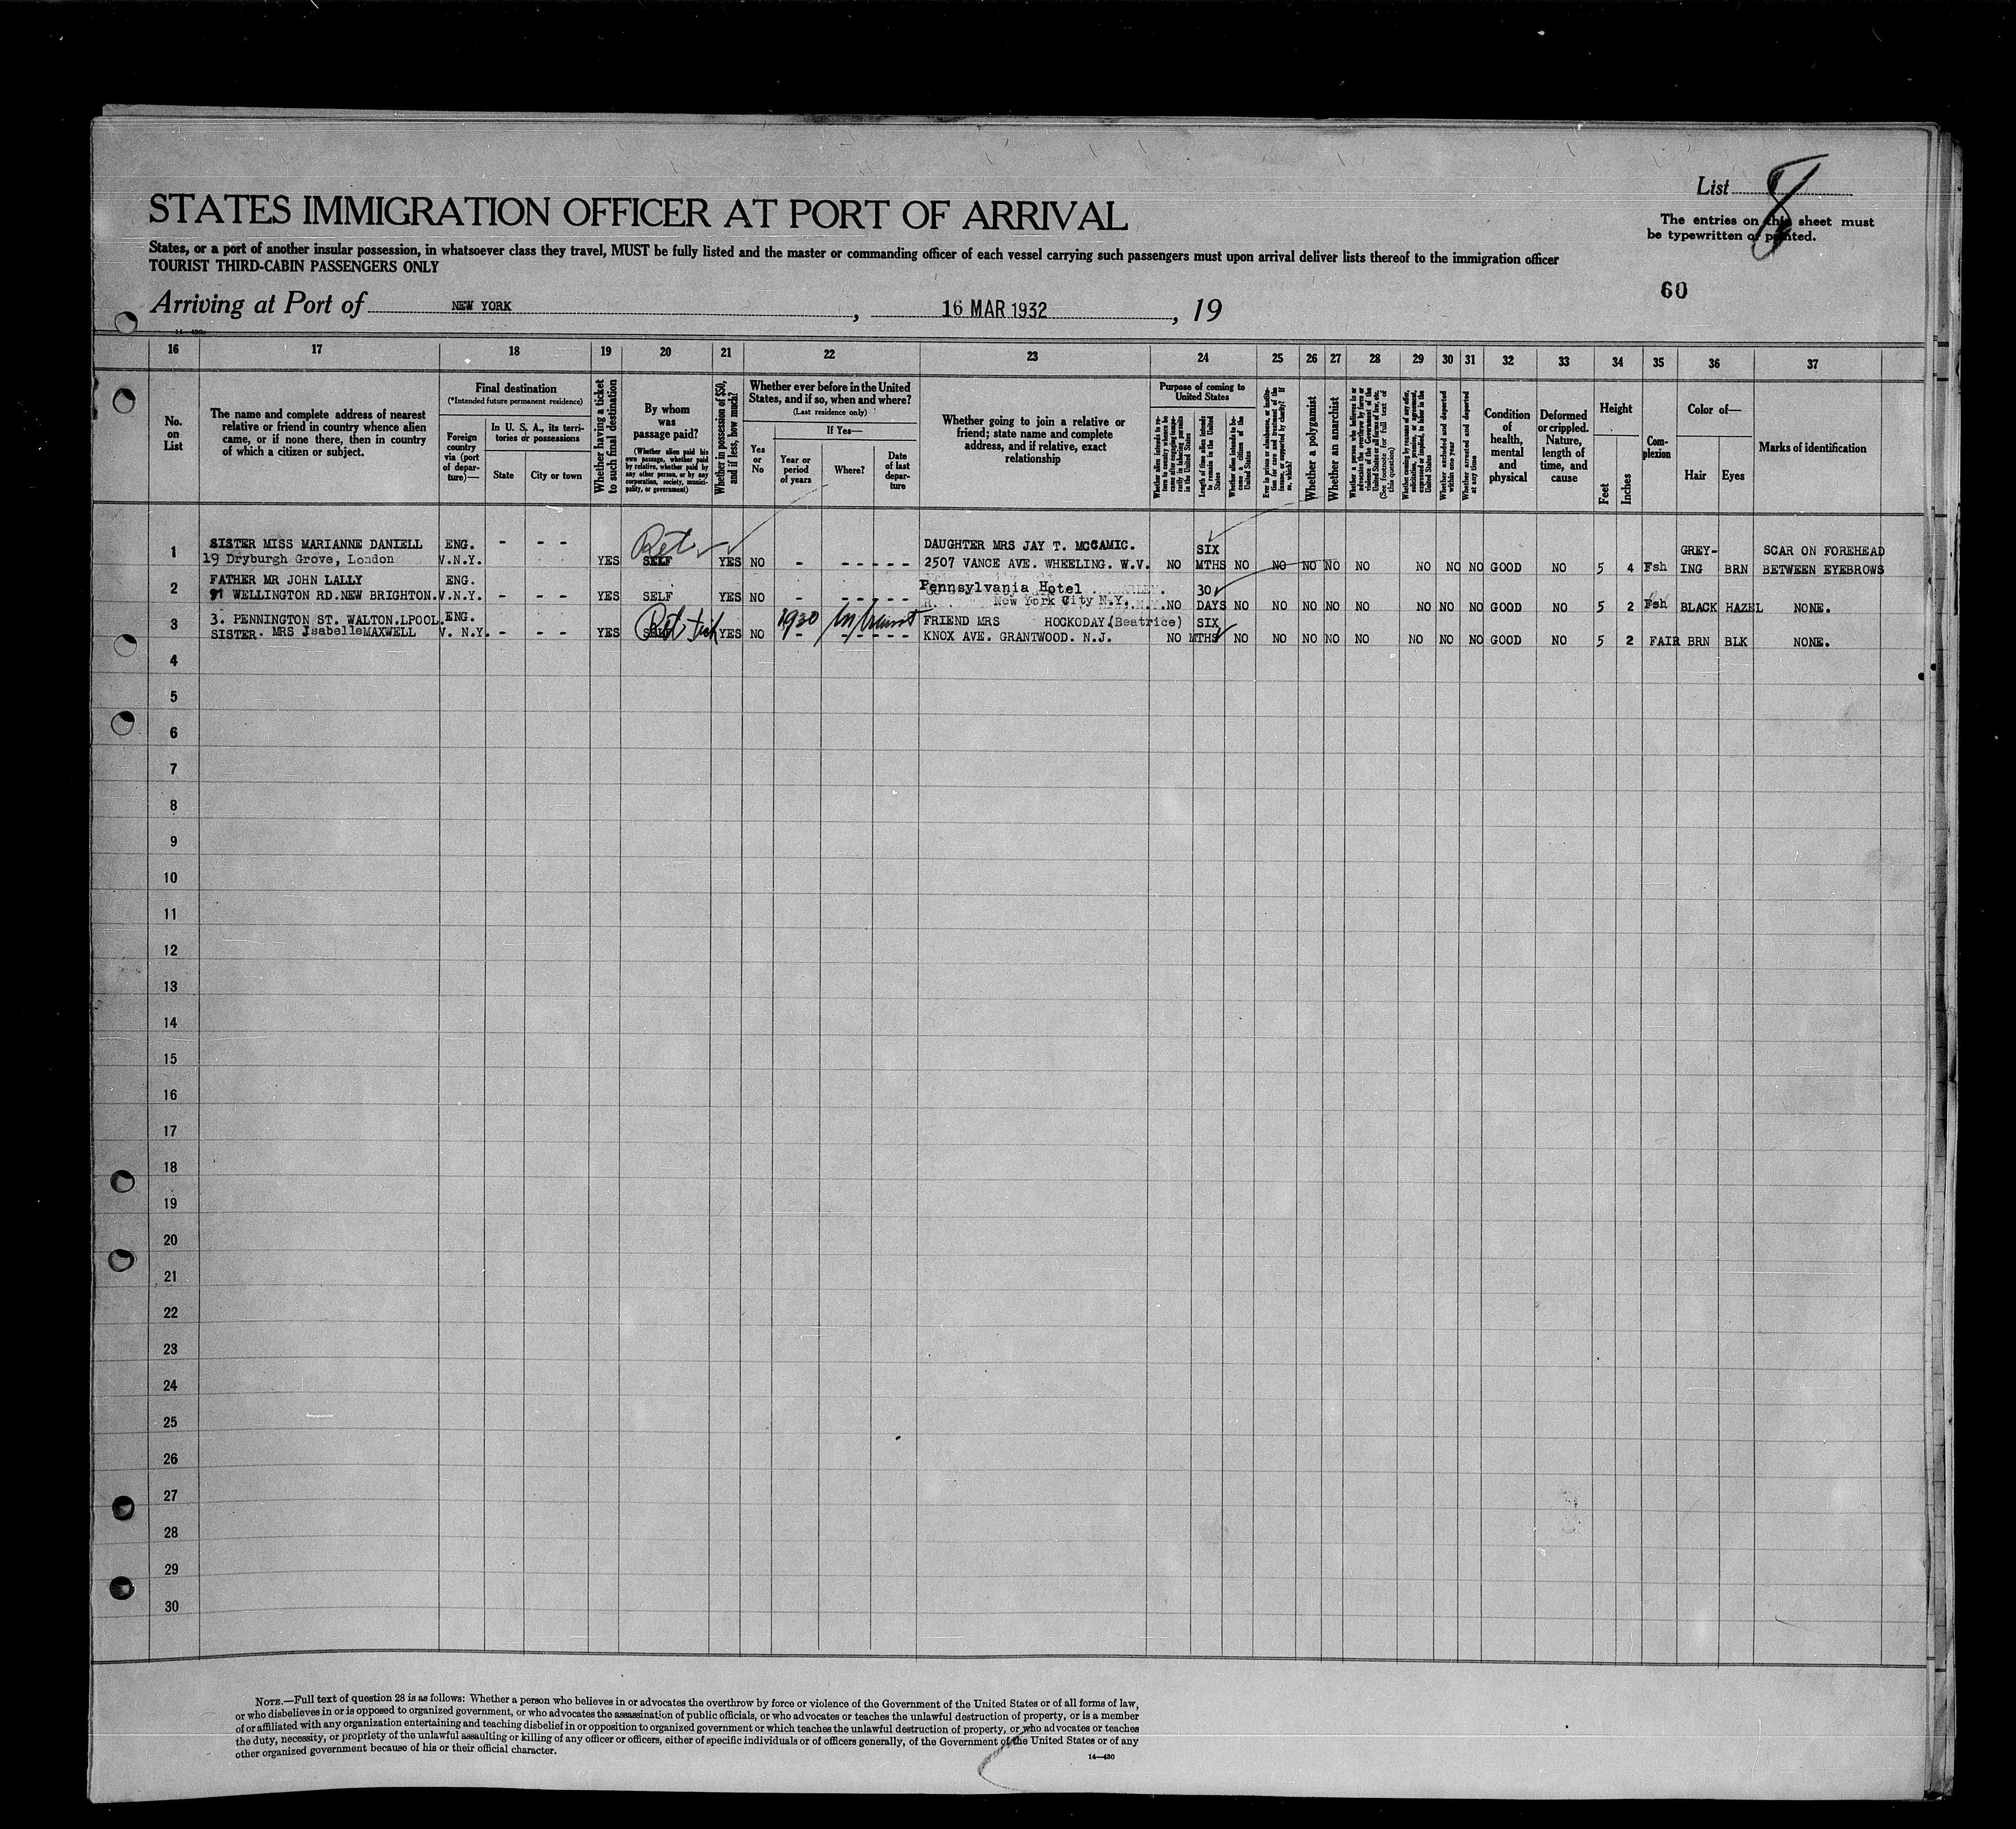 List 8
STATES IMMIGRATION OFFICER AT PORT OF ARRIVAL
The entries on this sheet must
be typewritten or printed.
States, or a port of another insular possession, in whatsoever class they travel, MUST be fully listed and the master or commanding officer of each vessel carrying such passengers must upon arrival deliver lists thereof to the immigration officer
TOURIST THIRD-CABIN PASSENGERS ONLY
60
Arriving at Port of NEW YORK, 16 MAR 1932, 19
16 17 18 19 20 21 22 23 24 25 26 27 28 29 30 31 32 33 34 35 36 37
No.
on
List
The name and complete address of nearest
relative or friend in country whence alien
came, or if none there, then in country
of which a citizen or subject.
Final destination
(*Intended future permanent residence)
Foreign
country
via (port
of depar-
ture)—
In U. S. A., its terri-
tories or possessions
State
City or town
Whether having a ticket
to such final destination
By whom
was
passage paid?
(Whether alien paid his
own passage, whether paid
by relative, whether paid by
any other person, or by any
corporation, society, munici-
pality, or government)
Whether in possession of $50,
and if less, how much?
Whether ever before in the United
States, and if so, when and where?
(Last residence only)
Yes
or
No
If Yes—
Year or
period
of years
Where?
Date
of last
depar-
ture
Whether going to join a relative or
friend; state name and complete
address, and if relative, exact
relationship
Purpose of coming to
United States
Whether alien intends to re-
turn to country whence he
came after engaging tempo-
rarily in laboring pursuits
in the United States
Length of time alien intends
to remain in the United
States
Whether alien intends to be-
come a citizen of the
United States
Ever in prison or almshouse, or institu-
tion for care and treatment of the
insane, or supported by charity? If
so, which?
Whether a polygamist
Whether an anarchist
Whether a person who believes in or
advocates the overthrow by force or
violence of the Government of the
United States or all forms of law, etc.
(See footnote for full text of
this question)
Whether coming by reason of any offer,
solicitation, promise, or agreement,
expressed or implied, to labor in the
United States
Whether excluded and deported
within one year
Whether arrested and deported
at any time
Condition
of
health,
mental
and
physical
Deformed
or crippled.
Nature,
length of
time, and
cause
Height
Feet
Inches
Com-
plexion
Color of—
Hair
Eyes
Marks of identification
1 SISTER MISS MARIANNE DANIELL ENG. - - - Ret DAUGHTER MRS JAY T. MCCAMIC. SIX GREY- SCAR ON FOREHEAD
19 Dryburgh Grove, London V.N.Y. YES SELF YES NO - - - - - - 2507 VANCE AVE. WHEELING. W.V. NO MTHS NO NO NO NO NO NO NO NO GOOD NO 5 4 Fsh ING BRN BETWEEN EYEBROWS
2 FATHER MR JOHN LALLY ENG. Pennsylvania Hotel 30
91 WELLINGTON RD.NEW BRIGHTON. V.N.Y. - - - YES SELF YES NO - - - - - - New York City N.Y. NO DAYS NO NO NO NO NO NO NO NO GOOD NO 5 2 Fsh BLACK HAZEL NONE.
3 3. PENNINGTON ST. WALTON.LPOOL. ENG. Ret tick 1930 In transit FRIEND MRS HOCKODAY.(Beatrice) SIX
SISTER. MRS Isabelle MAXWELL V. N.Y. - - - YES SELF YES NO - - - - - KNOX AVE. GRANTWOOD. N.J. NO MTHS NO NO NO NO NO NO NO NO GOOD NO 5 2 FAIR BRN BLK NONE.
4
5
6
7
8
9
10
11
12
13
14
15
16
17
18
19
20
21
22
23
24
25
26
27
28
29
30
NOTE.—Full text of question 28 is as follows: Whether a person who believes in or advocates the overthrow by force or violence of the Government of the United States or of all forms of law,
or who disbelieves in or is opposed to organized government, or who advocates the assassination of public officials, or who advocates or teaches the unlawful destruction of property, or is a member
of or affiliated with any organization entertaining and teaching disbelief in or opposition to organized government or which teaches the unlawful destruction of property, or who advocates or teaches
the duty, necessity, or propriety of the unlawful assaulting or killing of any officer or officers, either of specific individuals or of officers generally, of the Government of the United States or of any
other organized government because of his or their official character.
14—430